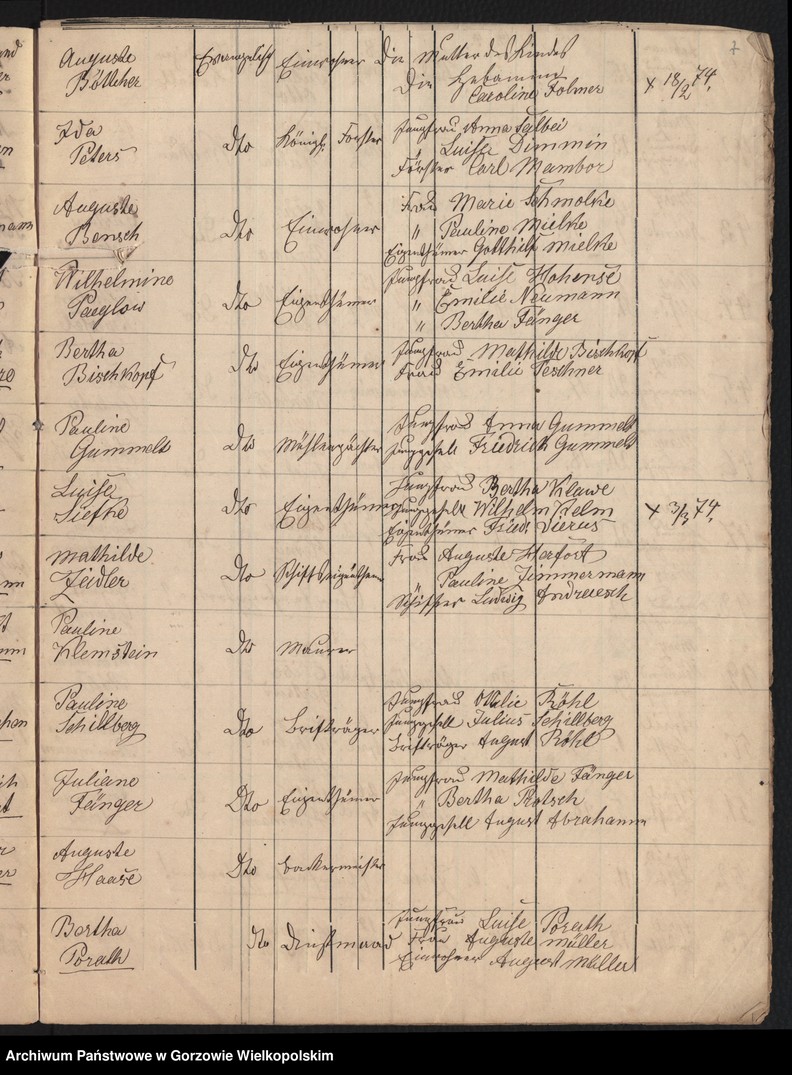 Auguste Evangelisch Einwohner Die Mutter des Kindes
Bötlcher Die Hebamme
Caroline Folmer + 18/2 74.
Ida dto Königl. Förster Jungfrau Anna Selbei
Peters " Luise Dimmin
Förster Carl Mambor
Auguste dto Einwohner Frau Marie Schmolke
Bensch " Pauline Mielke
Eigenthümer Gotthilf Mielke
Wilhelmine dto Eigenthümer Jungfrau Luise Hohensé
Paeglow " Emilie Neumann
" Bertha Fänger
Bertha dto Eigenthümer Jungfrau Mathilde Bischkopf
Bischkopf Frau Emilie Teschner
Pauline dto Mühlenpächter Jungfrau Anna Gummelt
Gummelt Junggesell Friedrich Gummelt
Luise dto Eigenthümer Jungfrau Bertha Klawe
Liefke Junggesell Wilhelm Kelm + 3/3 74.
Eigenthümer Fried. Vierus
Mathilde dto Schiffseigenthüm Frau Auguste Herfort
Zeidler " Pauline Zimmermann
Schiffer Ludwig Andreesch
Pauline dto Maurer
Klemstein
Pauline dto Briefträger Jungfrau Ottilie Röhl
Schillberg Junggesell Julius Schillberg
Briefträger August Röhl
Juliane Dto Eigenthümer Jungfrau Mathilde Fänger
Fänger " Bertha Rotsch
Junggesell August Abrahamm
Auguste Dto Backermeister
Haase
Bertha dto Dienstmaad Jungfrau Luise Porath
Porath Frau Auguste Müller
Einwohner August Müller
Archiwum Państwowe w Gorzowie Wielkopolskim